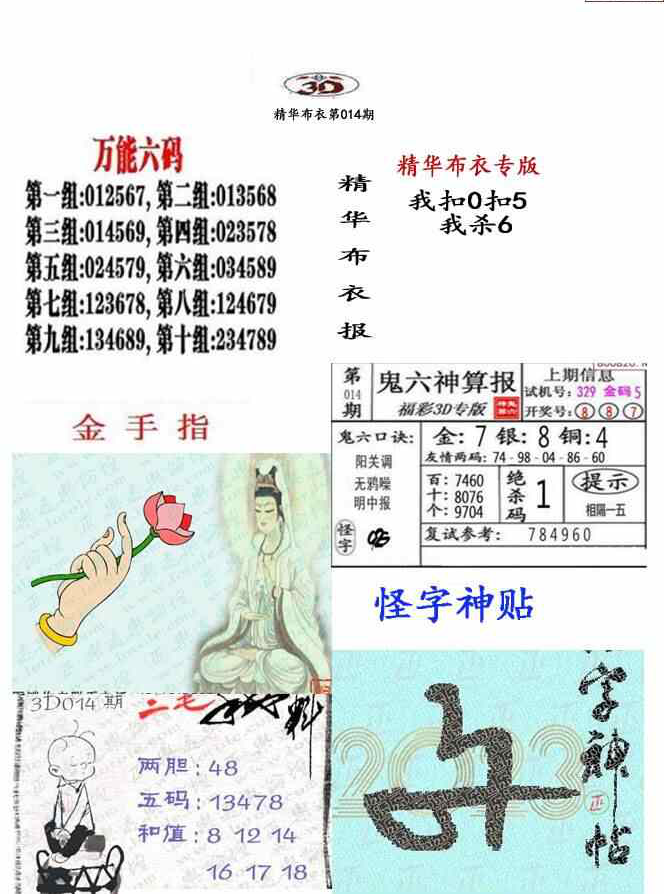 3D
精华布衣第014期
万能六码
第一组:012567, 第二组:013568
第三组:014569, 第四组:023578
第五组:024579, 第六组:034589
第七组:123678, 第八组:124679
第九组:134689, 第十组:234789
精华布衣报
精华布衣专版
我扣0扣5
我杀6
金手指
第014期
鬼六神算报
福彩3D专版
上期信息
试机号: 329 金码5
开奖号: 8 8 7
鬼六口诀:
阳关调
无鸦噪
明中报
怪字
金: 7 银: 8 铜: 4
友情两码: 74-98-04-86-60
百: 7460
十: 8076
个: 9704
绝杀码 1
提示
相隔一五
复试参考: 784960
怪字神贴
3D014期
两胆: 48
五码: 13478
和值: 8 12 14
16 17 18
2023
字神帖